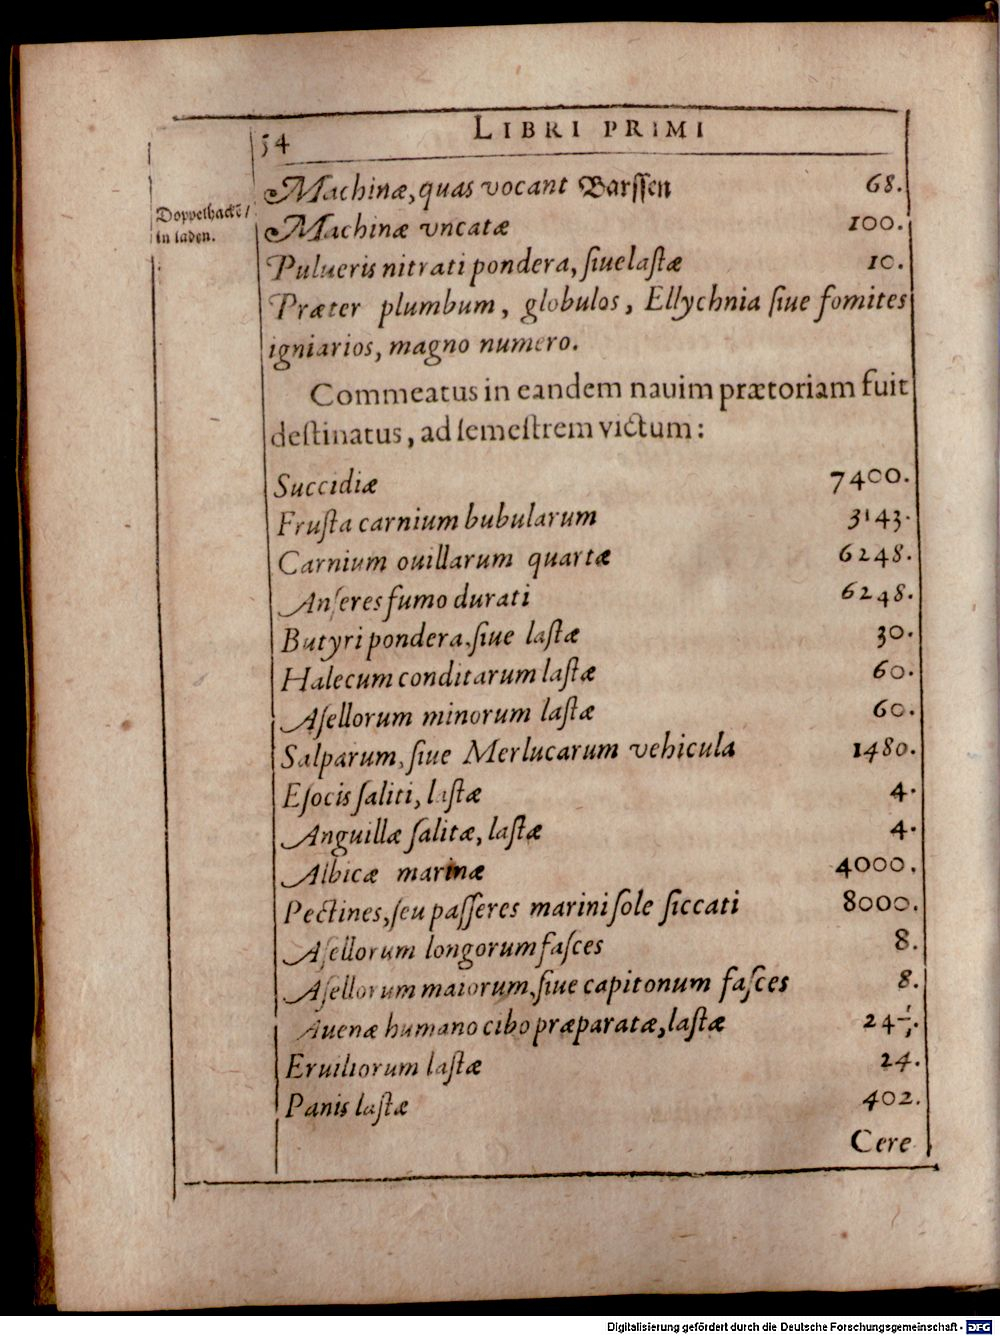 54
LIBRI PRIMI
Machinæ, quas vocant Barſſen 68.
Doppelhacke/
in laden.
Machinæ vncatæ 100.
Pulueris nitrati pondera, ſiue laſtæ 10.
Præter plumbum, globulos, Ellychnia ſiue fomites
igniarios, magno numero.
Commeatus in eandem nauim prætoriam fuit
deſtinatus, ad ſemeſtrem victum:
Succidiæ 7400.
Fruſta carnium bubularum 3143.
Carnium ouillarum quartæ 6248.
Anſeres fumo durati 6248.
Butyri pondera, ſiue laſtæ 30.
Halecum conditarum laſtæ 60.
Aſellorum minorum laſtæ 60.
Salparum, ſiue Merlucarum vehicula 1480.
Eſocis ſaliti, laſtæ 4.
Anguillæ ſalitæ, laſtæ 4.
Albicæ marinæ 4000.
Pectines, ſeu paſſeres marini ſole ſiccati 8000.
Aſellorum longorum faſces 8.
Aſellorum maiorum, ſiue capitonum faſces 8.
Auenæ humano cibo præparatæ, laſtæ 24
Eruiliorum laſtæ 24.
Panis laſtæ 402.
Cere
Digitalisierung gefördert durch die Deutsche Forschungsgemeinschaft - DFG